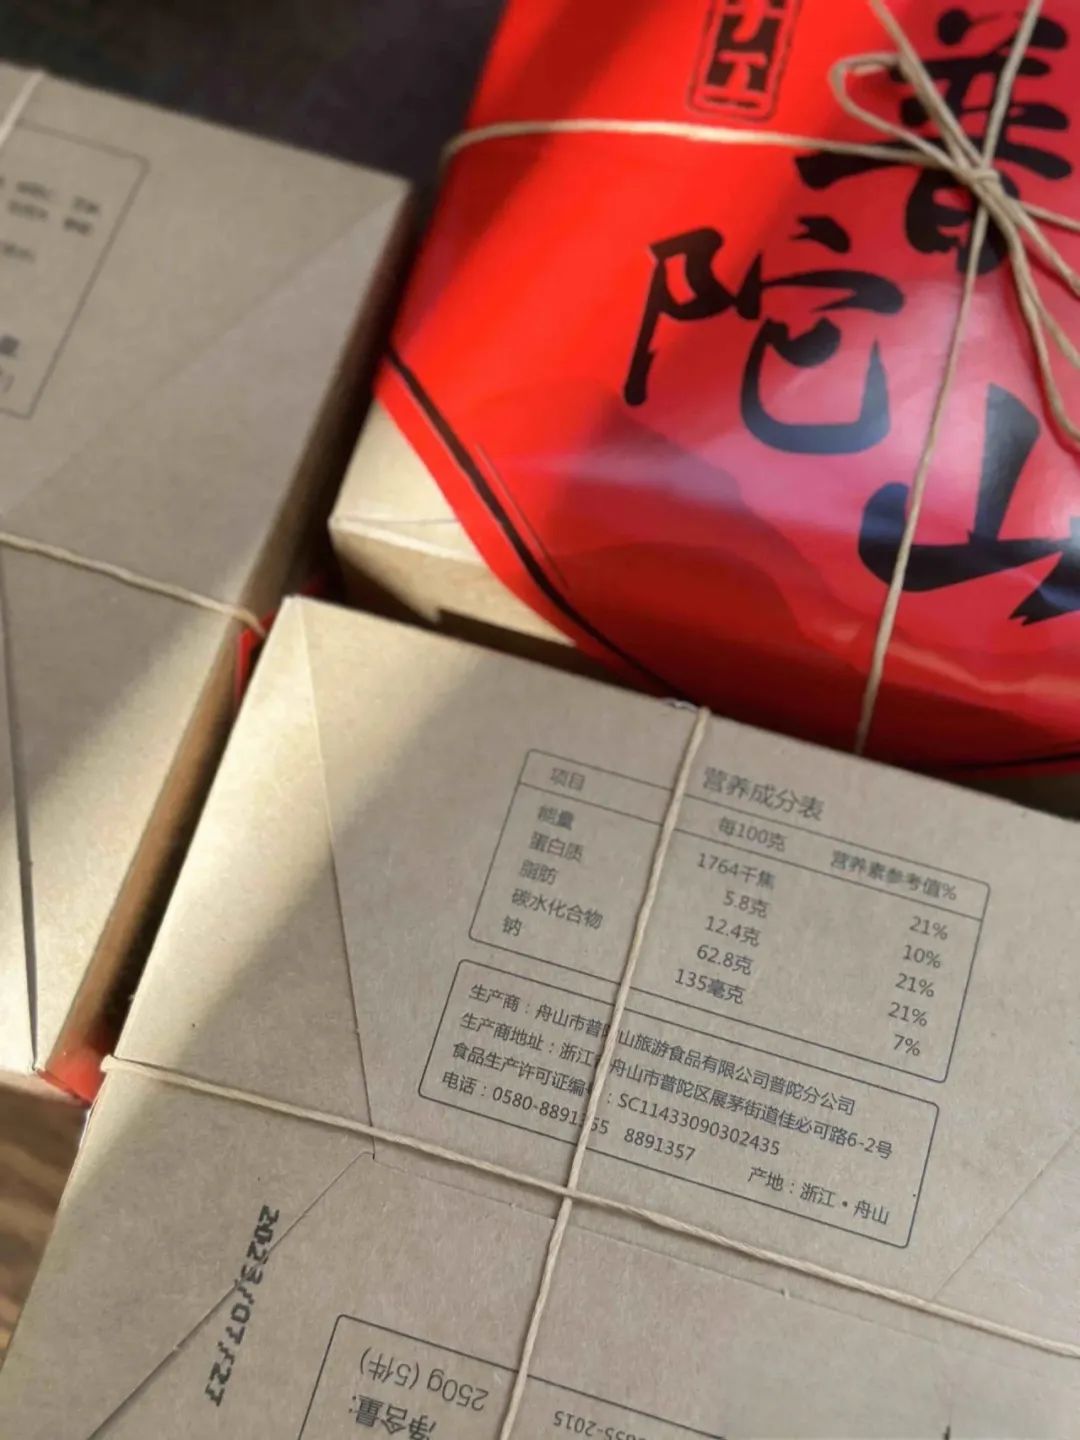 手工
普
陀
山
营养成分表
项目 每100克 营养素参考值%
能量 1764千焦 21%
蛋白质 5.8克 10%
脂肪 12.4克 21%
碳水化合物 62.8克 21%
钠 135毫克 7%
生产商：舟山市普陀山旅游食品有限公司普陀分公司
生产商地址：浙江省舟山市普陀区展茅街道佳必可路6-2号
食品生产许可证编号：SC11433090302435
电话：0580-8891355 8891357
产地：浙江·舟山
2023/07/27
净含量：
250g (5件)